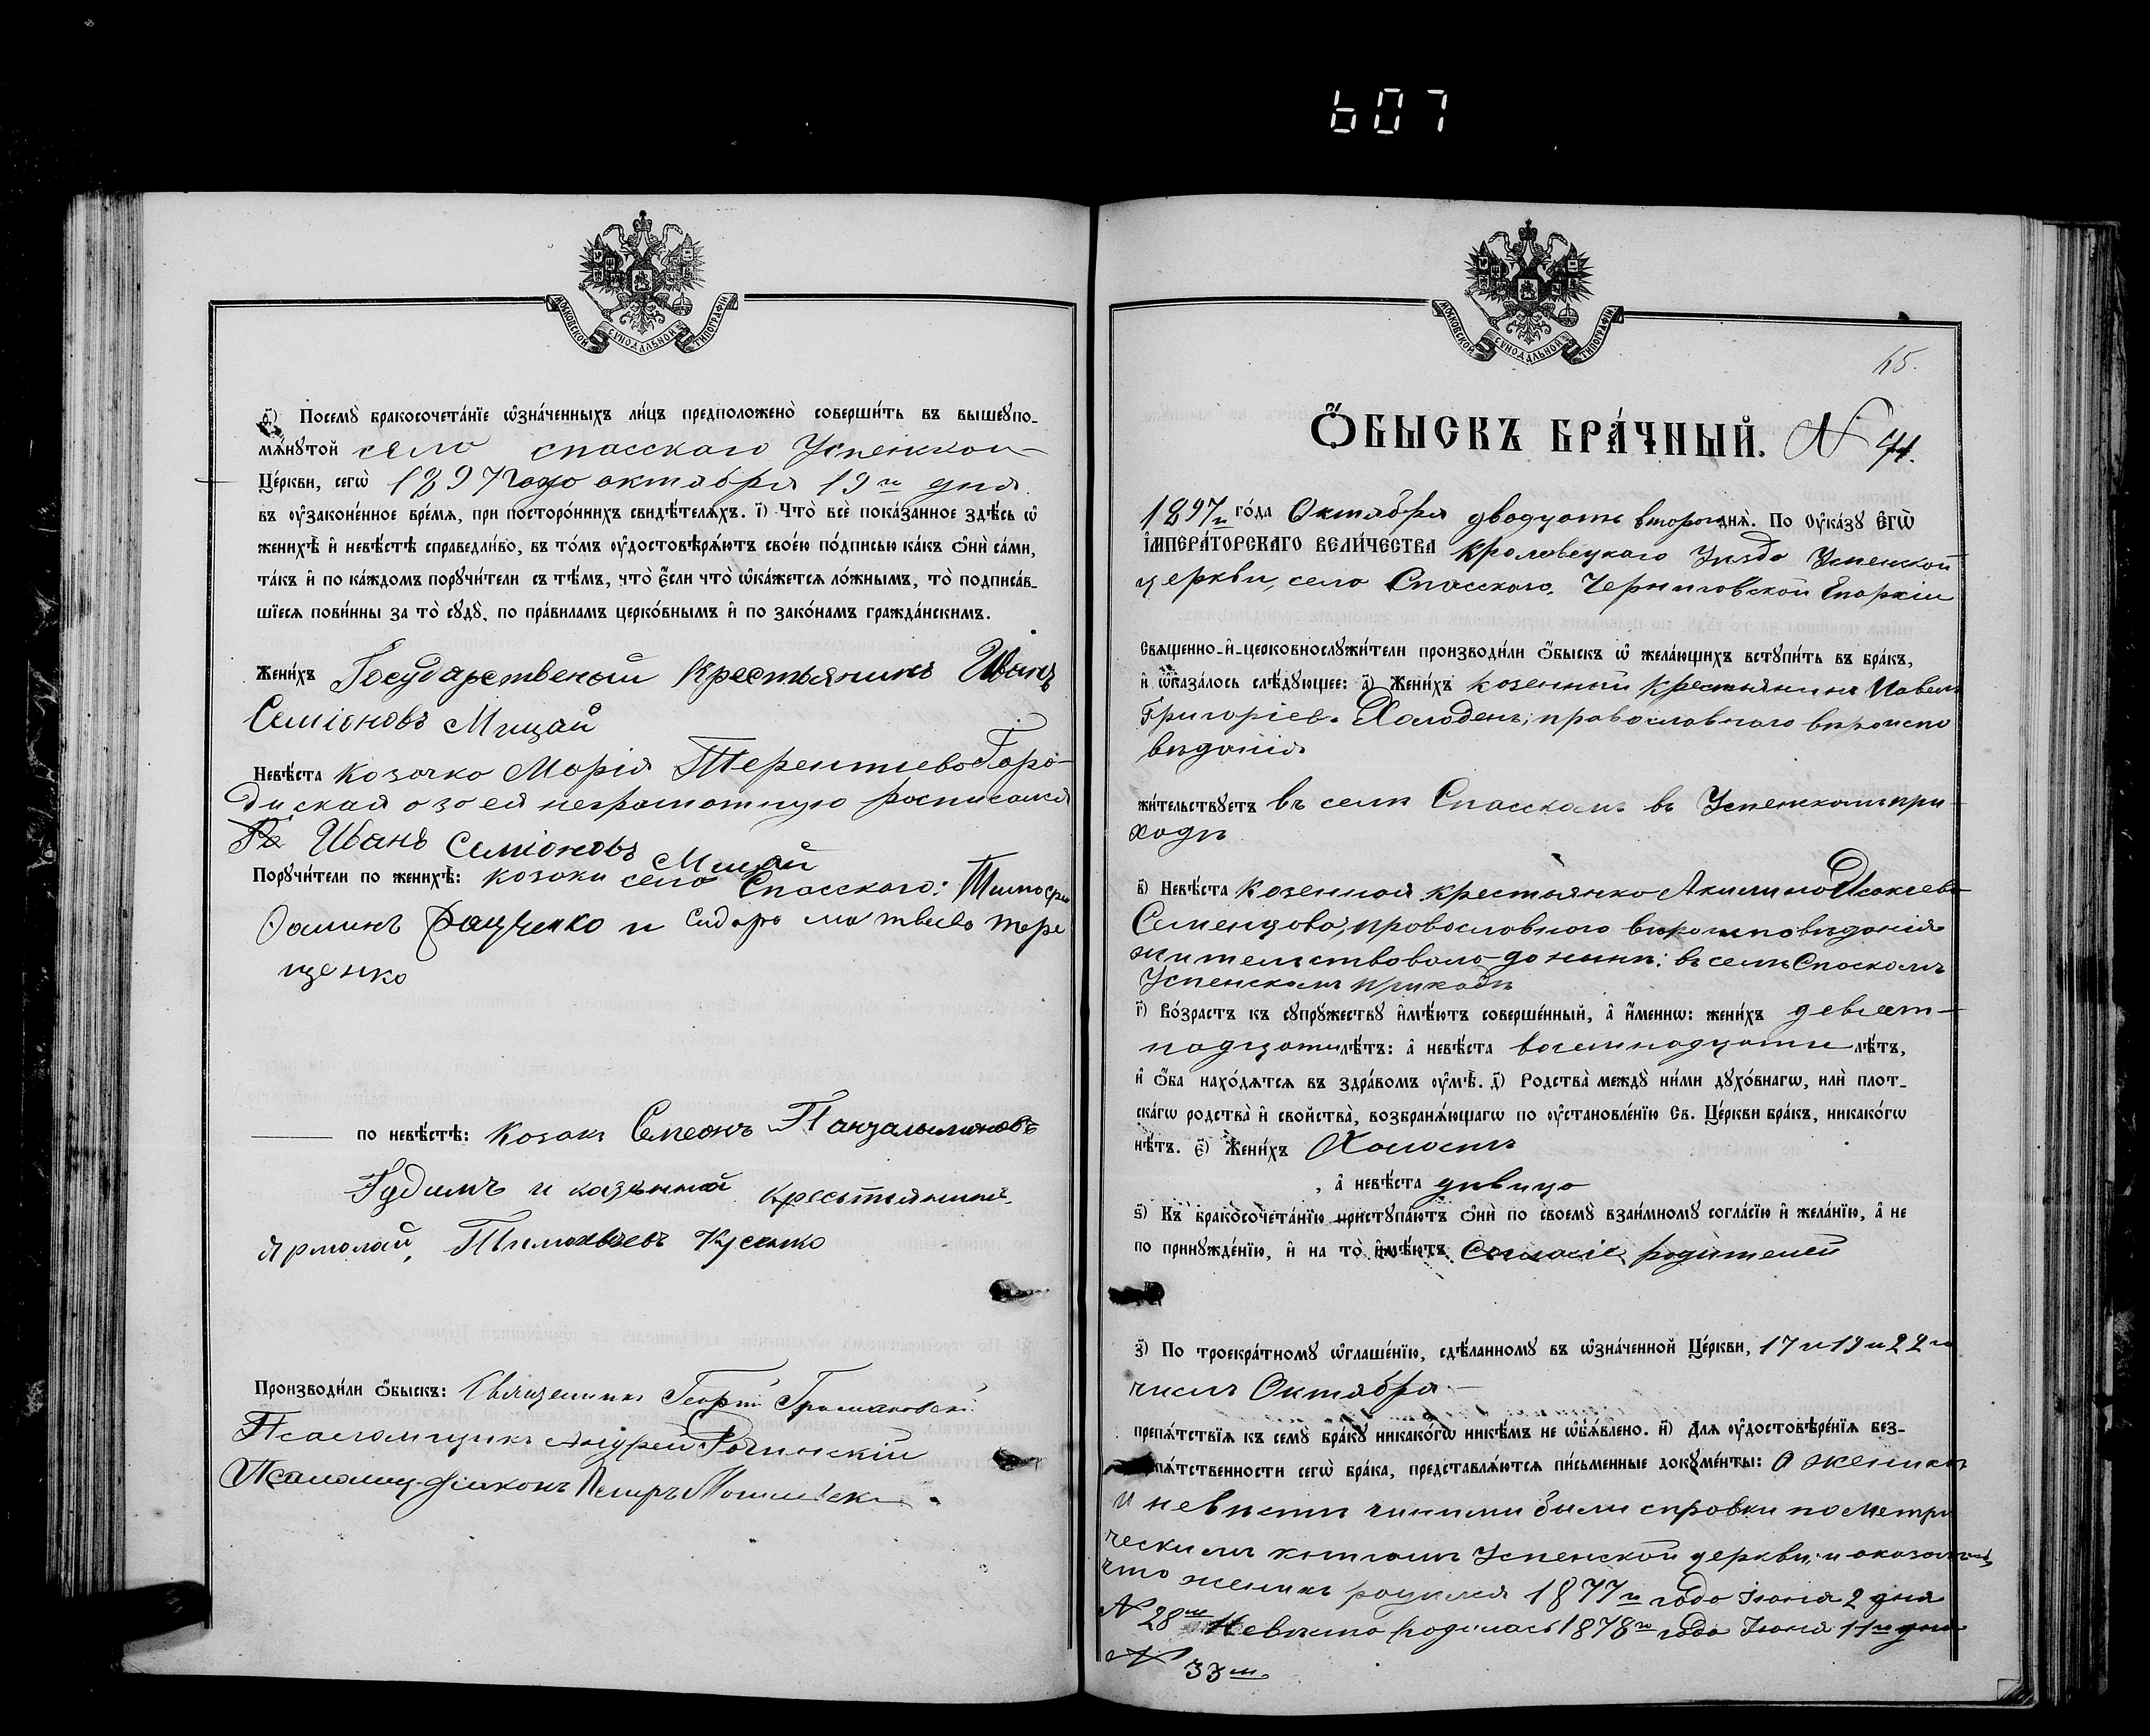 607
МОСКОВСКОЙ СѴНОДАЛЬНОЙ ТИПОГРАФІИ
ѳ҃) Посемꙋ̀ бракосочета́нїе ѡ҆зна́ченныхъ ли́цъ предположено̀ соверши́ть въ вышеꙋпо-
мѧ́нꙋтой село спасскаго Успенской
Це́ркви, сегѡ̀ 1897 года октября 19го дня
въ ᲂу҆законе́нное вре́мѧ, при посторо́ннихъ свидѣ́телѧхъ. і҃) Что̀ всѐ пока́занное здѣ́сь ѡ҆
женихѣ̀ и҆ невѣ́стѣ справедли́во, въ то́мъ ᲂу҆достовѣрѧ́ютъ свое́ю по́дписью ка́къ ѻ҆нѝ са́ми,
та́къ и҆ по ка́ждомъ порꙋчи́тели съ тѣ́мъ, что̀ є҆́сли что̀ ѡ҆ка́жетсѧ ло́жнымъ, то̀ подписа́в-
шїесѧ пови́нны за то̀ сꙋдꙋ̀, по пра́виламъ церко́внымъ и҆ по зако́намъ гражда́нскимъ.
Жени́хъ Государственой Крестьянинъ Иванъ
Семіоновъ Мицай
Невѣ́ста Козачка Марія Терентиева Горо-
диская а за ей неграмотную росписался
Иванъ Семіоновъ Мицай
Порꙋчи́тели по женихѣ̀: козаки село Спасского: Тимофей
Фоминъ и Сидоръ Матвиевъ Тере
щенко
по невѣ́стѣ: Козакъ Семеонъ
Гудимъ и казенной крестьянинъ
Ярмолай, Тимохвеевъ Кусенко
Производи́ли ѻ҆́быскъ: Священникъ Георгій
Псаломщикъ Андрей
Псаломщ. діаконъ Петръ
МОСКОВСКОЙ СѴНОДАЛЬНОЙ ТИПОГРАФІИ
65.
Ѻ҆́БЫСКЪ БРА́ЧНЫЙ. N 41.
1897го го́да Октября двадцать второго днѧ̀. По Оу҆ка́зꙋ Є҆ГѠ̀
І҆МПЕРА́ТОРСКАГО ВЕЛИ́ЧЕСТВА Кролевецкаго Уѣзда Успенской
церкви, село Спасскаго, Черниговской Епархіи
Свѧще́нно-и҆-церковнослꙋжи́тели производи́ли ѻ҆́быскъ ѡ҆ жела́ющихъ встꙋпи́ть въ бра́къ,
и҆ ѡ҆каза́лось слѣ́дꙋющее: а҃) Жени́хъ казенный крестьянинъ Павелъ
Григоріев. Холоденъ, православнаго вѣроиспо
вѣданія
жи́тельствꙋетъ въ селѣ Спасскомъ въ Успенскомъ при-
ходѣ
в҃) Невѣ́ста казенная крестьянка Акилина Исакіева
Семенцова, православного вѣроисповѣданія
жительствовала до нынѣ: въ селѣ Спаскомъ
Успенскомъ приходѣ
г҃) Во́зрастъ къ сꙋпрꙋ́жествꙋ и҆мѣ́ютъ соверше́нный, а҆ и҆́меннѡ: жени́хъ девят-
надцати лѣ́тъ: а҆ невѣ́ста восемнадцати лѣ́тъ,
и҆ ѻ҆́ба нахо́дѧтсѧ въ здра́вомъ ᲂу҆мѣ̀. д҃) Родства̀ междꙋ̀ ни́ми дꙋхо́внагѡ, илѝ плот-
ска́гѡ родства̀ и҆ свойства̀, возбранѧ́ющагѡ по ᲂу҆становле́нїю Св. Це́ркви бра́къ, никако́гѡ
нѣ́тъ. є҃) Жени́хъ Холостъ
, а҆ невѣ́ста дѣвица
ѕ҃) Къ бракосочета́нїю пристꙋпа́ютъ ѻ҆нѝ по своемꙋ̀ взаи́мномꙋ согла́сїю и҆ жела́нїю, а҆ не
по принꙋжде́нїю, и҆ на то̀ и҆мѣ́ютъ Согласіе родителей
з҃) По троекра́тномꙋ ѡ҆глаше́нїю, сдѣ́ланномꙋ въ ѡ҆зна́ченной Це́ркви, 17 и 19 и 22го
числъ Октября
препѧ́тствїѧ къ семꙋ̀ бра́кꙋ никако́гѡ никѣ́мъ не ѡ҆б̾ѧ́влено. и҃) Длѧ ᲂу҆достовѣре́нїѧ без-
пѧ́тственности сегѡ̀ бра́ка, представлѧ́ютсѧ пи́сьменные докꙋме́нты: О женихѣ
и невѣстѣ чиними были справки по метри
ческимъ книгамъ Успенской церкви, и оказалось,
что женихъ родился 1877го года Іюня 2 дня
N 28м Невѣста родилась 1878го года Іюня 11го дня
N 33м